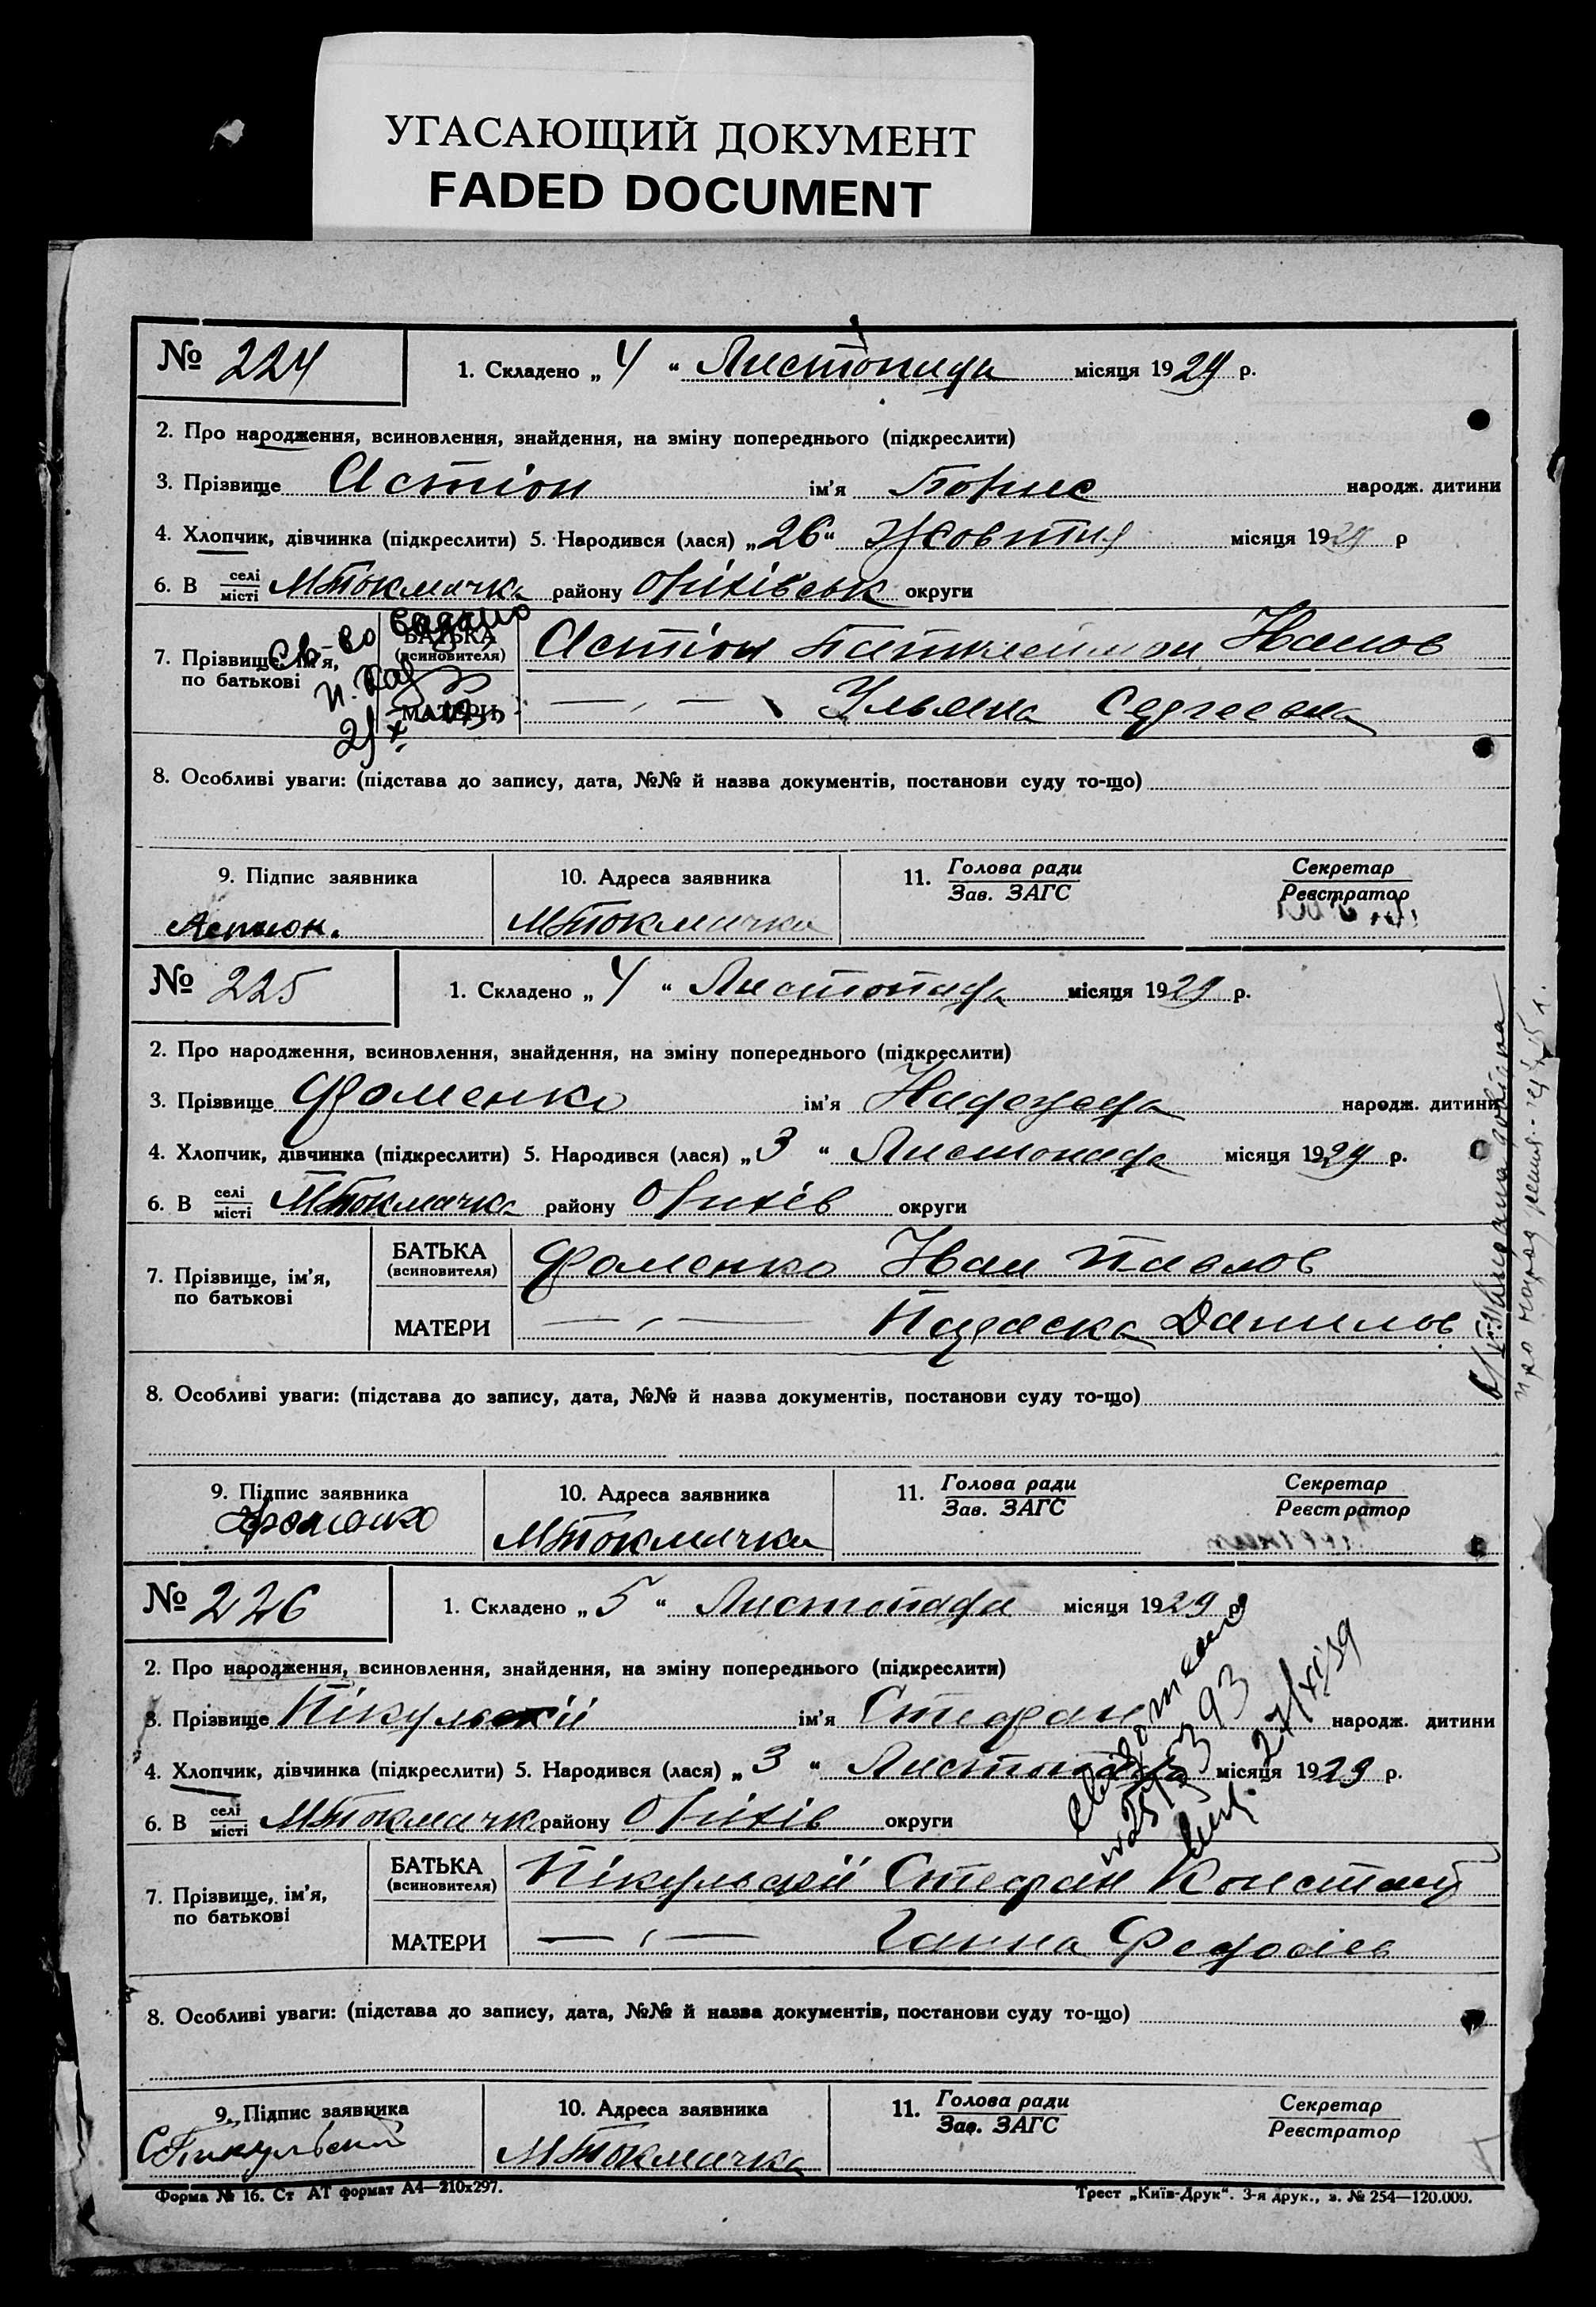 УГАСАЮЩИЙ ДОКУМЕНТ
FADED DOCUMENT
№ 224
1. Складено „ 4 “ Листопада місяця 1929 р.
2. Про народження, всиновлення, знайдення, на зміну попереднього (підкреслити)
3. Прізвище Астіон ім’я Борис народж. дитини
4. Хлопчик, дівчинка (підкреслити) 5. Народився (лася) „26“ Жовтня місяця 1929 р
6. В селі місті МТокмачка району Оріхівськ округи
Св-во видано
7. Прізвище, ім’я, по батькові
БАТЬКА (всиновителя) Астіон Пантелеимон Иванов
МАТЕРИ — „ — Ульяна Сергеевна
8. Особливі уваги: (підстава до запису, дата, №№ й назва документів, постанови суду то-що)
9. Підпис заявника 10. Адреса заявника 11. Голова ради Зав. ЗАГС Секретар Реєстратор
Астион. МТокмачка
№ 225
1. Складено „ 4 “ Листопада місяця 1929 р.
2. Про народження, всиновлення, знайдення, на зміну попереднього (підкреслити)
3. Прізвище Фоменко ім’я Надежда народж. дитини
4. Хлопчик, дівчинка (підкреслити) 5. Народився (лася) „ 3 “ Листопада місяця 1929 р.
6. В селі місті МТокмачка району Оріхів округи
7. Прізвище, ім’я, по батькові
БАТЬКА (всиновителя) Фоменко Иван Павлов
МАТЕРИ — „ — Параска Данилов
8. Особливі уваги: (підстава до запису, дата, №№ й назва документів, постанови суду то-що)
9. Підпис заявника 10. Адреса заявника 11. Голова ради Зав. ЗАГС Секретар Реєстратор
Фоменко МТокмачка
№ 226
1. Складено „ 5 “ Листопада місяця 1929 р.
2. Про народження, всиновлення, знайдення, на зміну попереднього (підкреслити)
3. Прізвище Пікульскій ім’я Стефан народж. дитини
4. Хлопчик, дівчинка (підкреслити) 5. Народився (лася) „ 3 “ Листопада місяця 1929 р.
6. В селі місті МТокмачк району Оріхів округи
7. Прізвище, ім’я, по батькові
БАТЬКА (всиновителя) Пікульскій Стефан Констант
МАТЕРИ — „ — Ганна Федосіев
8. Особливі уваги: (підстава до запису, дата, №№ й назва документів, постанови суду то-що)
9. Підпис заявника 10. Адреса заявника 11. Голова ради Зав. ЗАГС Секретар Реєстратор
СПикульский МТокмачка
Форма № 16. Ст АТ формат А4—210х297.
Трест „Київ-Друк“. 3-я друк., з. № 254—120.000.